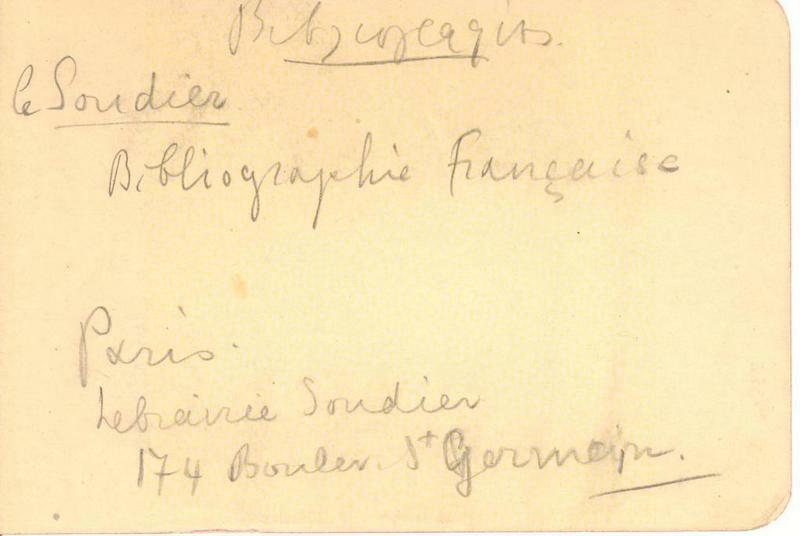 Le Soudier
Bibliographie Française
Paris.
Lebrairie Soudier
174 Boulev. St Germain.